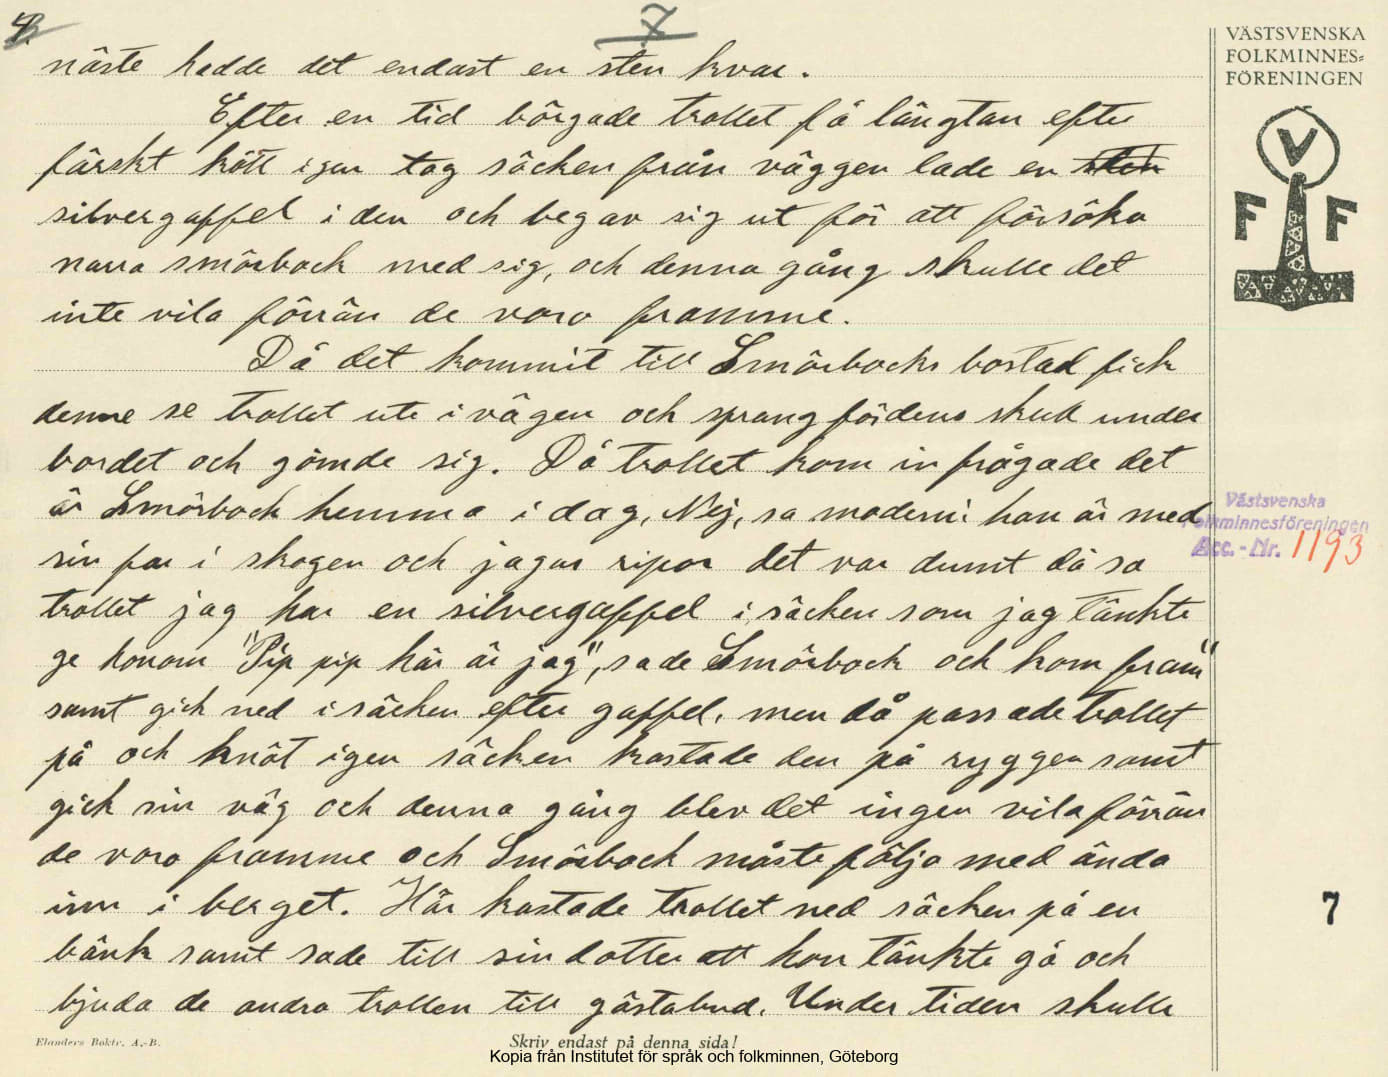 4.
7
näste hadde det endast en sten kvar.
Efter en tid börgade trollet få längtan efter
färskt kött igen tog säcken från väggen lade en sten
silvergaffel i den och begav sig ut för att försöka
narra smörbock med sig, och denna gång skulle det
inte vila förrän de voro framme.
Då det kommit till Smörbocks bostad fick
denne se trollet ute i vägen och sprang fördens skull under
bordet och gömde sig. Då trollet kom in frågade det
är Smörbock hemma i dag, Nej, sa modern: han är med
sin far i skogen och jagar ripor det var dumt då sa
trollet jag har en silvergaffel i säcken som jag tänkte
ge honom "Pip pip här är jag", sade Smörbock och kom fram"
samt gick ned i säcken efter gaffel, men då passade trollet
på och knöt igen säcken kastade den på ryggen samt
gick sin väg och denna gång blev det ingen vila förrän
de voro framme och Smörbock måste följa med ända
inn i berget. Här kastade trollet ned säcken på en
bänk samt sade till sin dotter att hon tänkte gå och
bjuda de andra trollen till gästabud. Under tiden skulle
VÄSTSVENSKA
FOLKMINNES=
FÖRENINGEN
V
F F
Västsvenska
Folkminnesföreningen
Acc.-Nr. 1193
7
Elanders Boktr. A.-B.
Skriv endast på denna sida!
Kopia från Institutet för språk och folkminnen, Göteborg